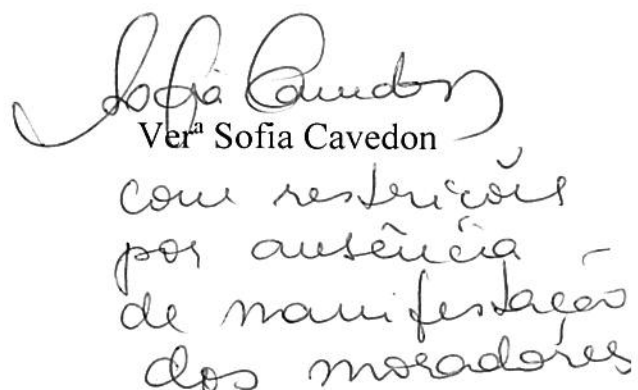 Sofia Cavedon
Verª Sofia Cavedon
com restrições
por ausência
de manifestação
dos moradores